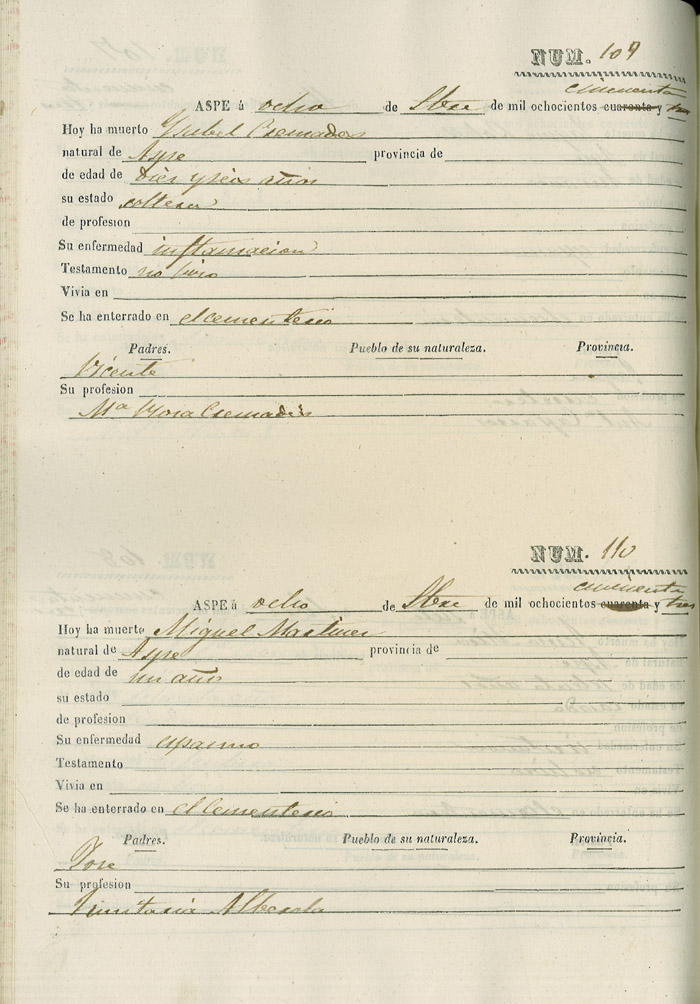 NUM. 109
cincuenta
ASPE á ocho de Sbre de mil ochocientos cuarenta y tres
Hoy ha muerto Ysabel Cremades
natural de Aspe provincia de
de edad de diez y seis años
su estado soltera
de profesion
Su enfermedad inflamacion
Testamento no hizo
Vivia en
Se ha enterrado en el cementerio
Padres. Pueblo de su naturaleza. Provincia.
Vicente
Su profesion
Mª Rosa Cremades
NUM. 110
cincuenta
ASPE á ocho de Sbre de mil ochocientos cuarenta y tres
Hoy ha muerto Miguel Martinez
natural de Aspe provincia de
de edad de un año
su estado
de profesion
Su enfermedad espasmo
Testamento
Vivia en
Se ha enterrado en el Cementerio
Padres. Pueblo de su naturaleza. Provincia.
Jose
Su profesion
Alberola